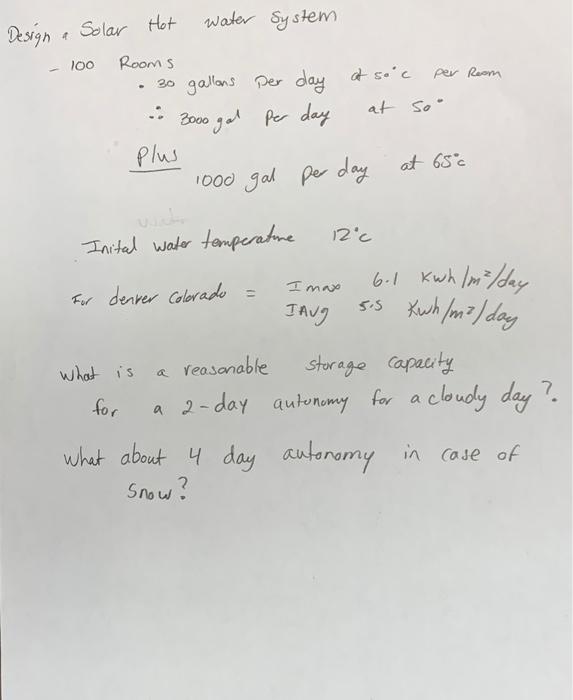 Design a Solar Hot Water System
- 100 Rooms
• 30 gallons per day at 50°c per Room
∴ 3000 gal per day at 50°
Plus
1000 gal per day at 65°c
Inital water temperature 12°c
For denver Colorado = Imax 6.1 Kwh/m²/day
IAvg 5.5 Kwh/m²/day
What is a reasonable storage capacity
for a 2-day autonomy for a cloudy day?.
What about 4 day autonomy in case of
Snow?